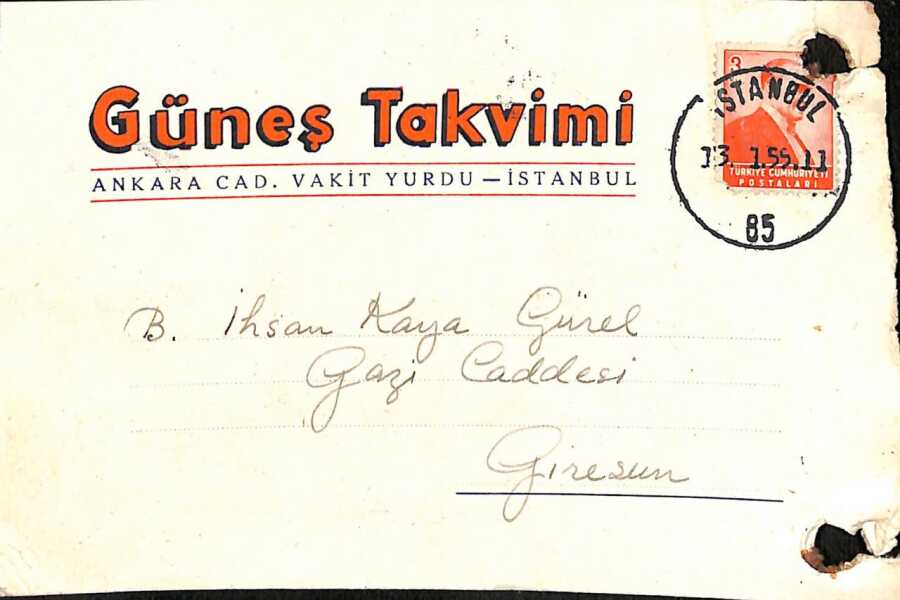 Güneş Takvimi
ANKARA CAD. VAKİT YURDU — İSTANBUL
3
İSTANBUL
13. 1.55.11
TÜRKİYE CUMHURİYETİ
POSTALARI
85
B. İhsan Kaya Gürel
Gazi Caddesi
Giresun